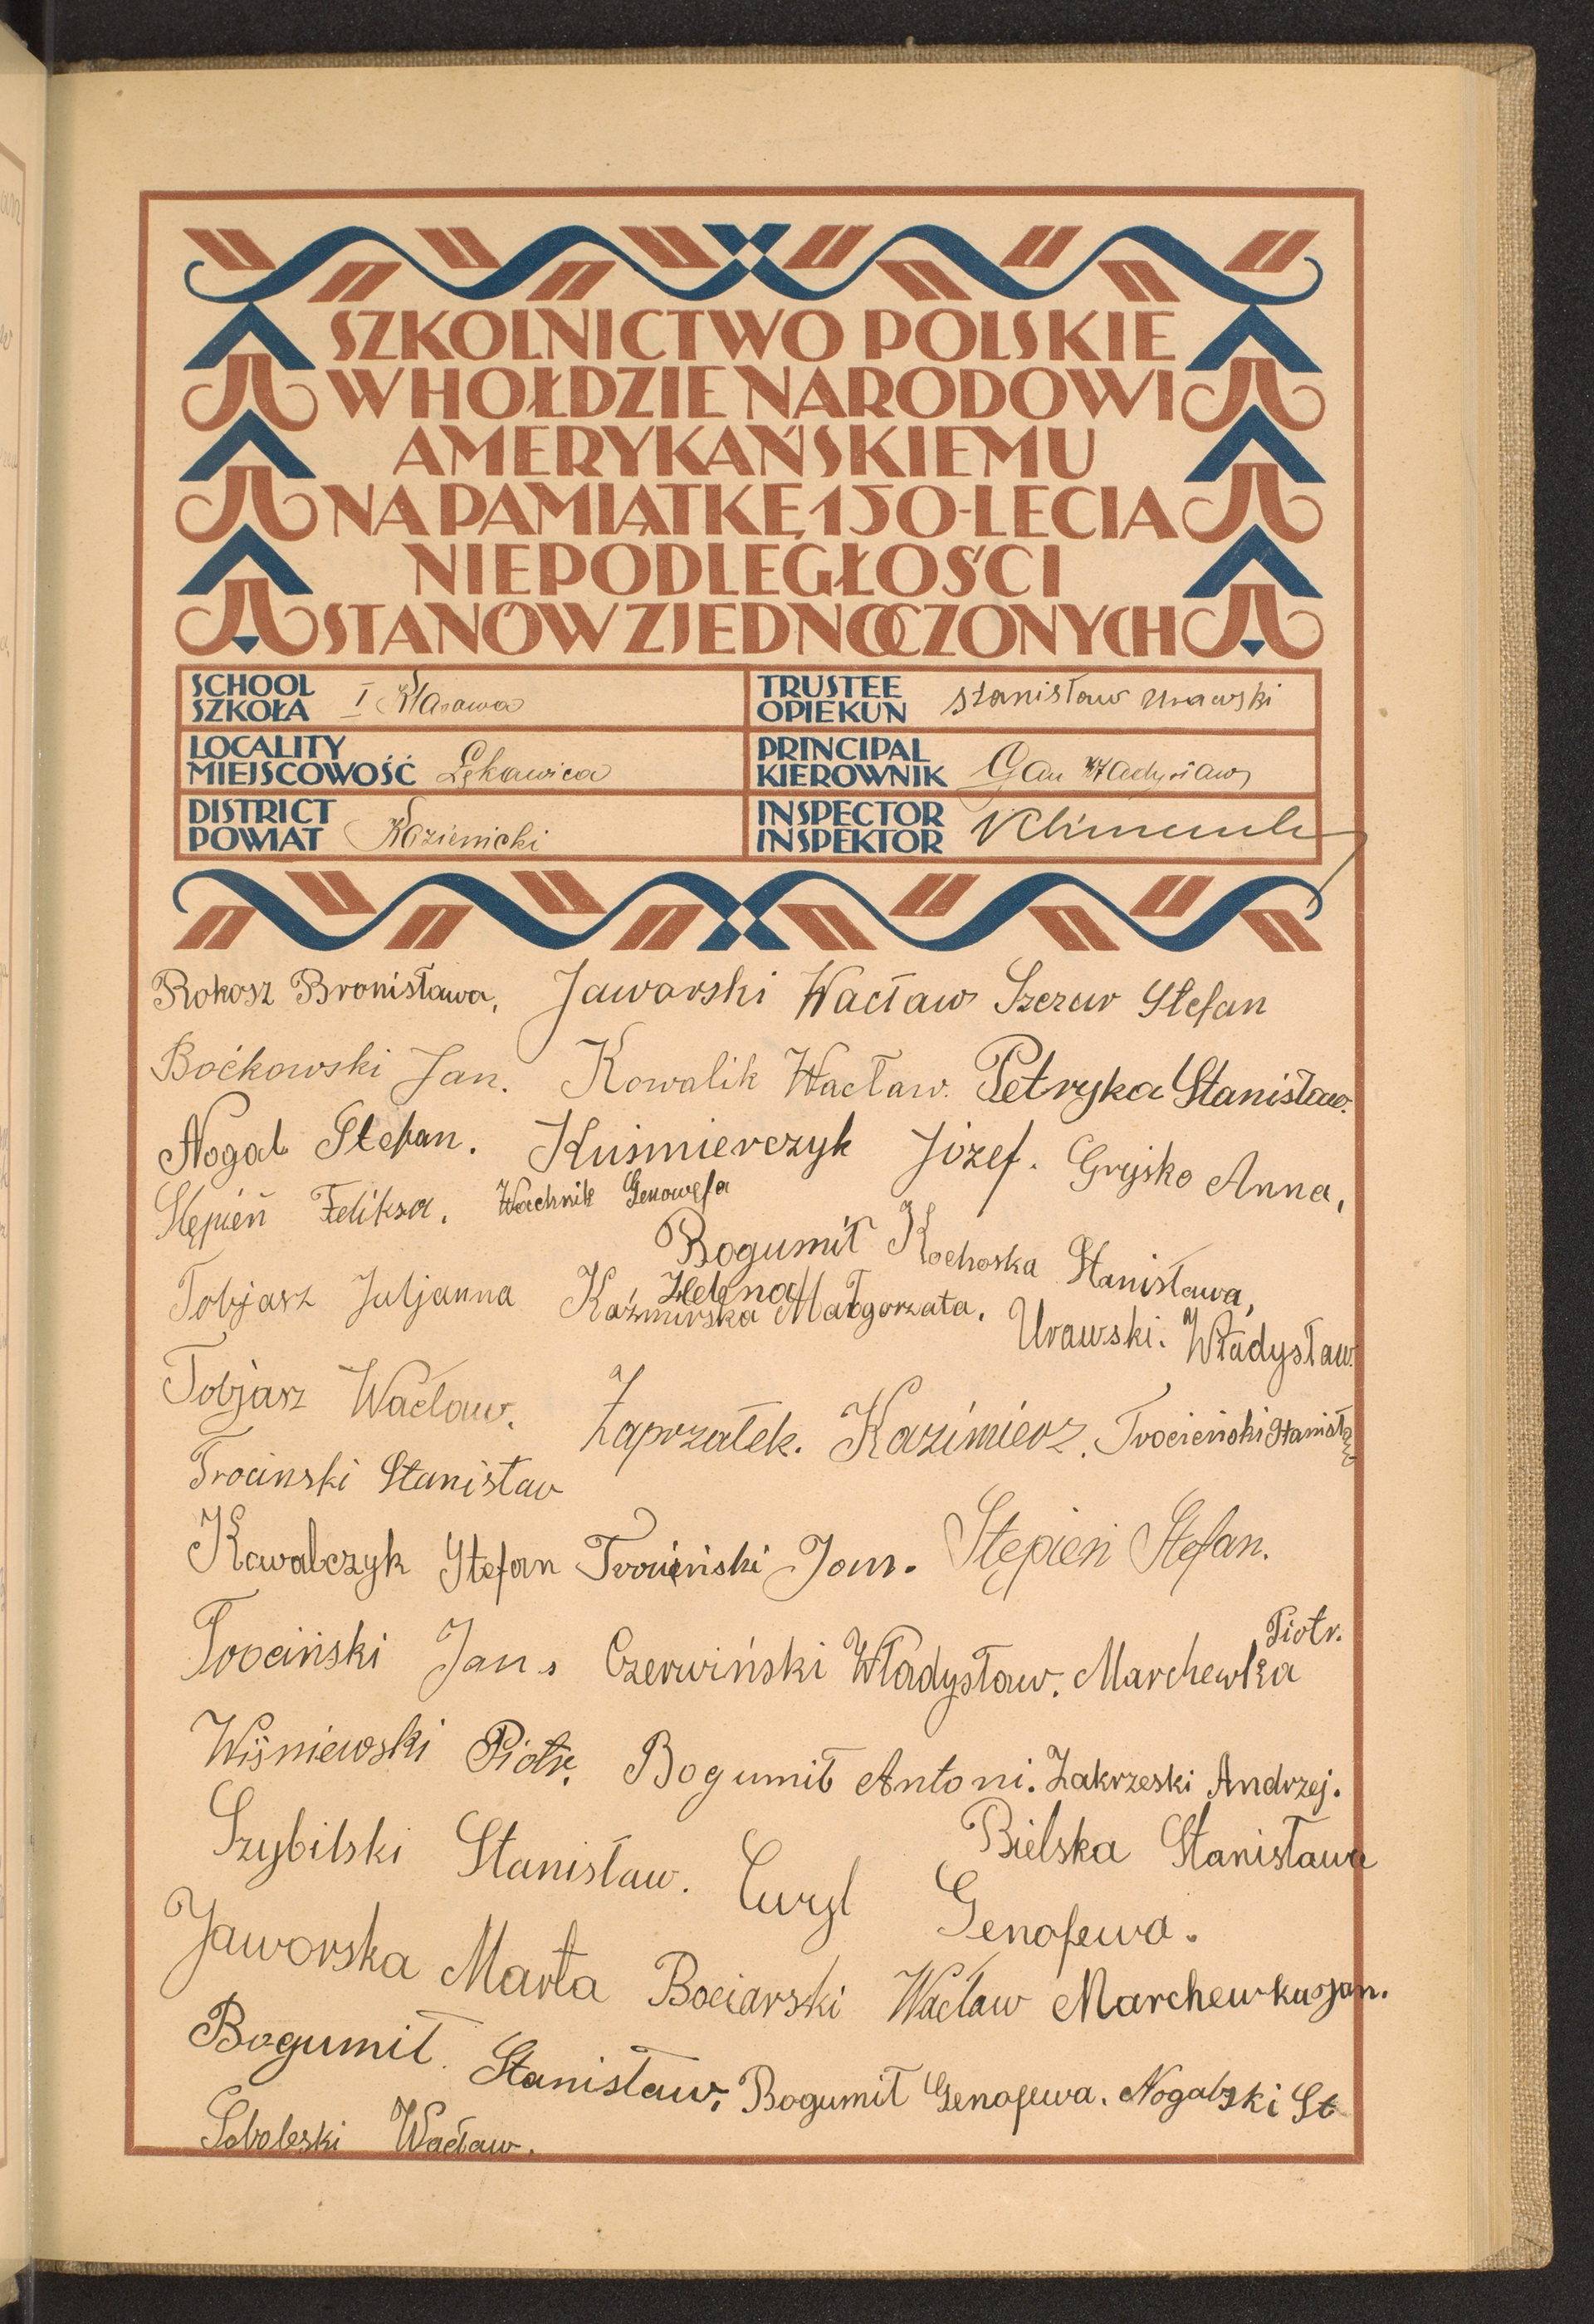 SZKOLNICTWO POLSKIE
W HOŁDZIE NARODOWI
AMERYKAŃSKIEMU
NA PAMIĄTKĘ 150-LECIA
NIEPODLEGŁOŚCI
STANÓW ZJEDNOCZONYCH
SCHOOL
SZKOŁA I Klasowa
TRUSTEE
OPIEKUN Stanisław Urawski
LOCALITY
MIEJSCOWOŚĆ Lękawica
PRINCIPAL
KIEROWNIK Gau Władysław
DISTRICT
POWIAT Kozienicki
INSPECTOR
INSPEKTOR
Rokosz Bronisława, Jaworski Wacław Szczur Stefan
Boćkowski Jan. Kowalik Wacław. Petryka Stanisław.
Nogal Stefan. Kuśmierczyk Józef. Gryjsko Anna,
Stępień Feliksa. Wachnik Genowefa
Bogumił Helena Kochoska Stanisława,
Tobjasz Juljanna Kaźmirska Małgorzata. Urawski. Władysław.
Tobjasz Wacław. Zaprzałek. Kazimierz. Trocieński Stanisław
Trocinski Stanisław
Kowalczyk Stefan Trocieński Jan. Stępień Stefan.
Trociński Jan. Czerwiński Władysław. Marchewka Piotr.
Wiśniewski Piotr. Bogumił Antoni. Zakrzeski Andrzej.
Szybilski Stanisław. Curyl Genofewa. Bielska Stanisława
Jaworska Marta Bociarski Wacław Marchewka Jan.
Bogumił. Stanisław. Bogumił Genofewa. Nogalski St
Soboleski Wacław.